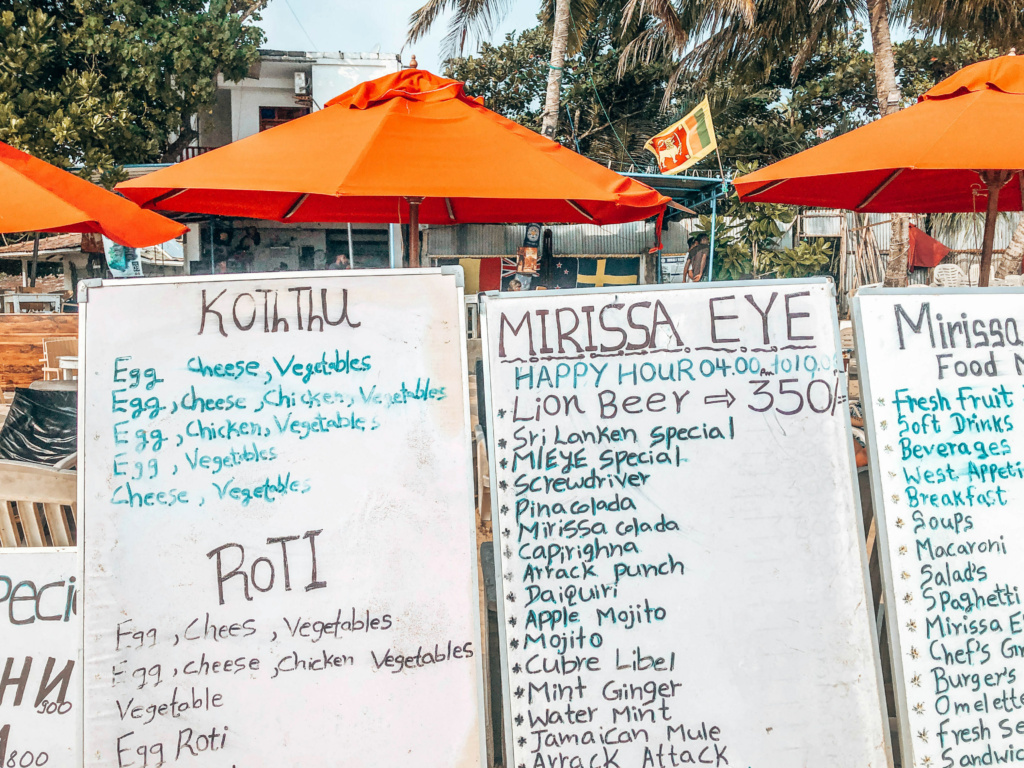 KOThThU
Egg Cheese, Vegetables
Egg, Cheese, Chicken, Vegetables
Egg, Chicken, Vegetables
Egg, Vegetables
Cheese, Vegetables
ROTI
Egg, Chees, Vegetables
Egg, cheese, Chicken Vegetables
Vegetable
Egg Roti
peci
НИ
900
800
MIRISSA EYE
HAPPY HOUR 04.00pm to 10.0
* Lion Beer ⇨ 350/=
* Sri Lanken Special
* M/EYE Special
* Screwdriver
* Pinacolada
* Mirissa colada
* Capirighna
* Arrack punch
* Daiquiri
* Apple Mojito
* Mojito
* Cubre Libel
* Mint Ginger
* Water Mint
* Jamaican Mule
* Arrack Attack
Mirissa
Food
* Fresh Fruit
* Soft Drinks
* Beverages
* West Appeti
* Breakfast
* Soups
* Macaroni
* Salad's
* Spaghetti
* Mirissa E
* Chef's Gr
* Burger's
* Omelette
* Fresh Se
* Sandwic